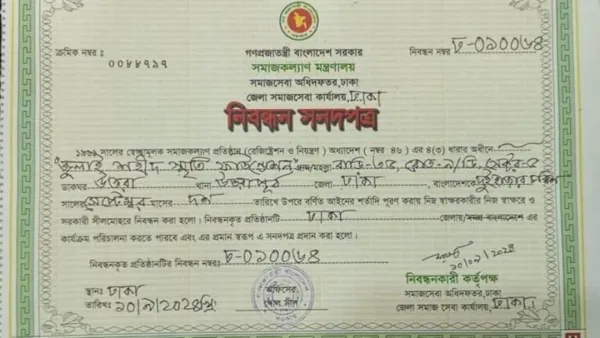 ক্রমিক নম্বর ঃ
০০৮৮৭৯৭
গণপ্রজাতন্ত্রী বাংলাদেশ সরকার
সমাজকল্যাণ মন্ত্রণালয়
সমাজসেবা অধিদফতর,ঢাকা
জেলা সমাজসেবা কার্যালয়, ঢাকা
নিবন্ধন নম্বর ঢ-০৯০০৬৪
নিবন্ধন সনদপত্র
১৯৬১ সালের স্বেচ্ছামূলক সমাজকল্যাণ প্রতিষ্ঠান (রেজিষ্ট্রেশন ও নিয়ন্ত্রণ) অধ্যাদেশ ( নম্বর ৪৬ ) এর ৪(৩) ধারার অধীনে
জুলাই শহীদ স্মৃতি ফাউন্ডেশন গ্রাম/মহল্লা বাড়ি-৩৫, রোড-৯/ডি, সেক্টর-৫
ডাকঘর উত্তরা থানা জেলা ঢাকা, বাংলাদেশকে দুইহাজার চব্বিশ
সালের সেপ্টেম্বর মাসের দশ তারিখে উপরে বর্ণিত আইনের শর্তাদি পূরণ করায় নিম্ন স্বাক্ষরকারীর নিজ স্বাক্ষরে ও
সরকারী সীলমোহরে নিবন্ধন করা হলো। নিবন্ধনকৃত প্রতিষ্ঠানটি ঢাকা জেলায়/সমগ্র বাংলাদেশে এর
কার্যক্রম পরিচালনা করতে পারবে এবং এর প্রমান স্বরূপ এ সনদপত্র প্রদান করা হলো।
নিবন্ধনকৃত প্রতিষ্ঠানটির নিবন্ধন নম্বরঃ ঢ-০৯০০৬৪
১০/০৯/২০২৪
স্থানঃ ঢাকা
তারিখঃ ১০/৯/২০২৪খ্রিঃ
অফিসের
গোল সীল
নিবন্ধনকারী কর্তৃপক্ষ
সমাজসেবা অধিদফতর,ঢাকা
জেলা সমাজ সেবা কার্যালয়, ঢাকা।